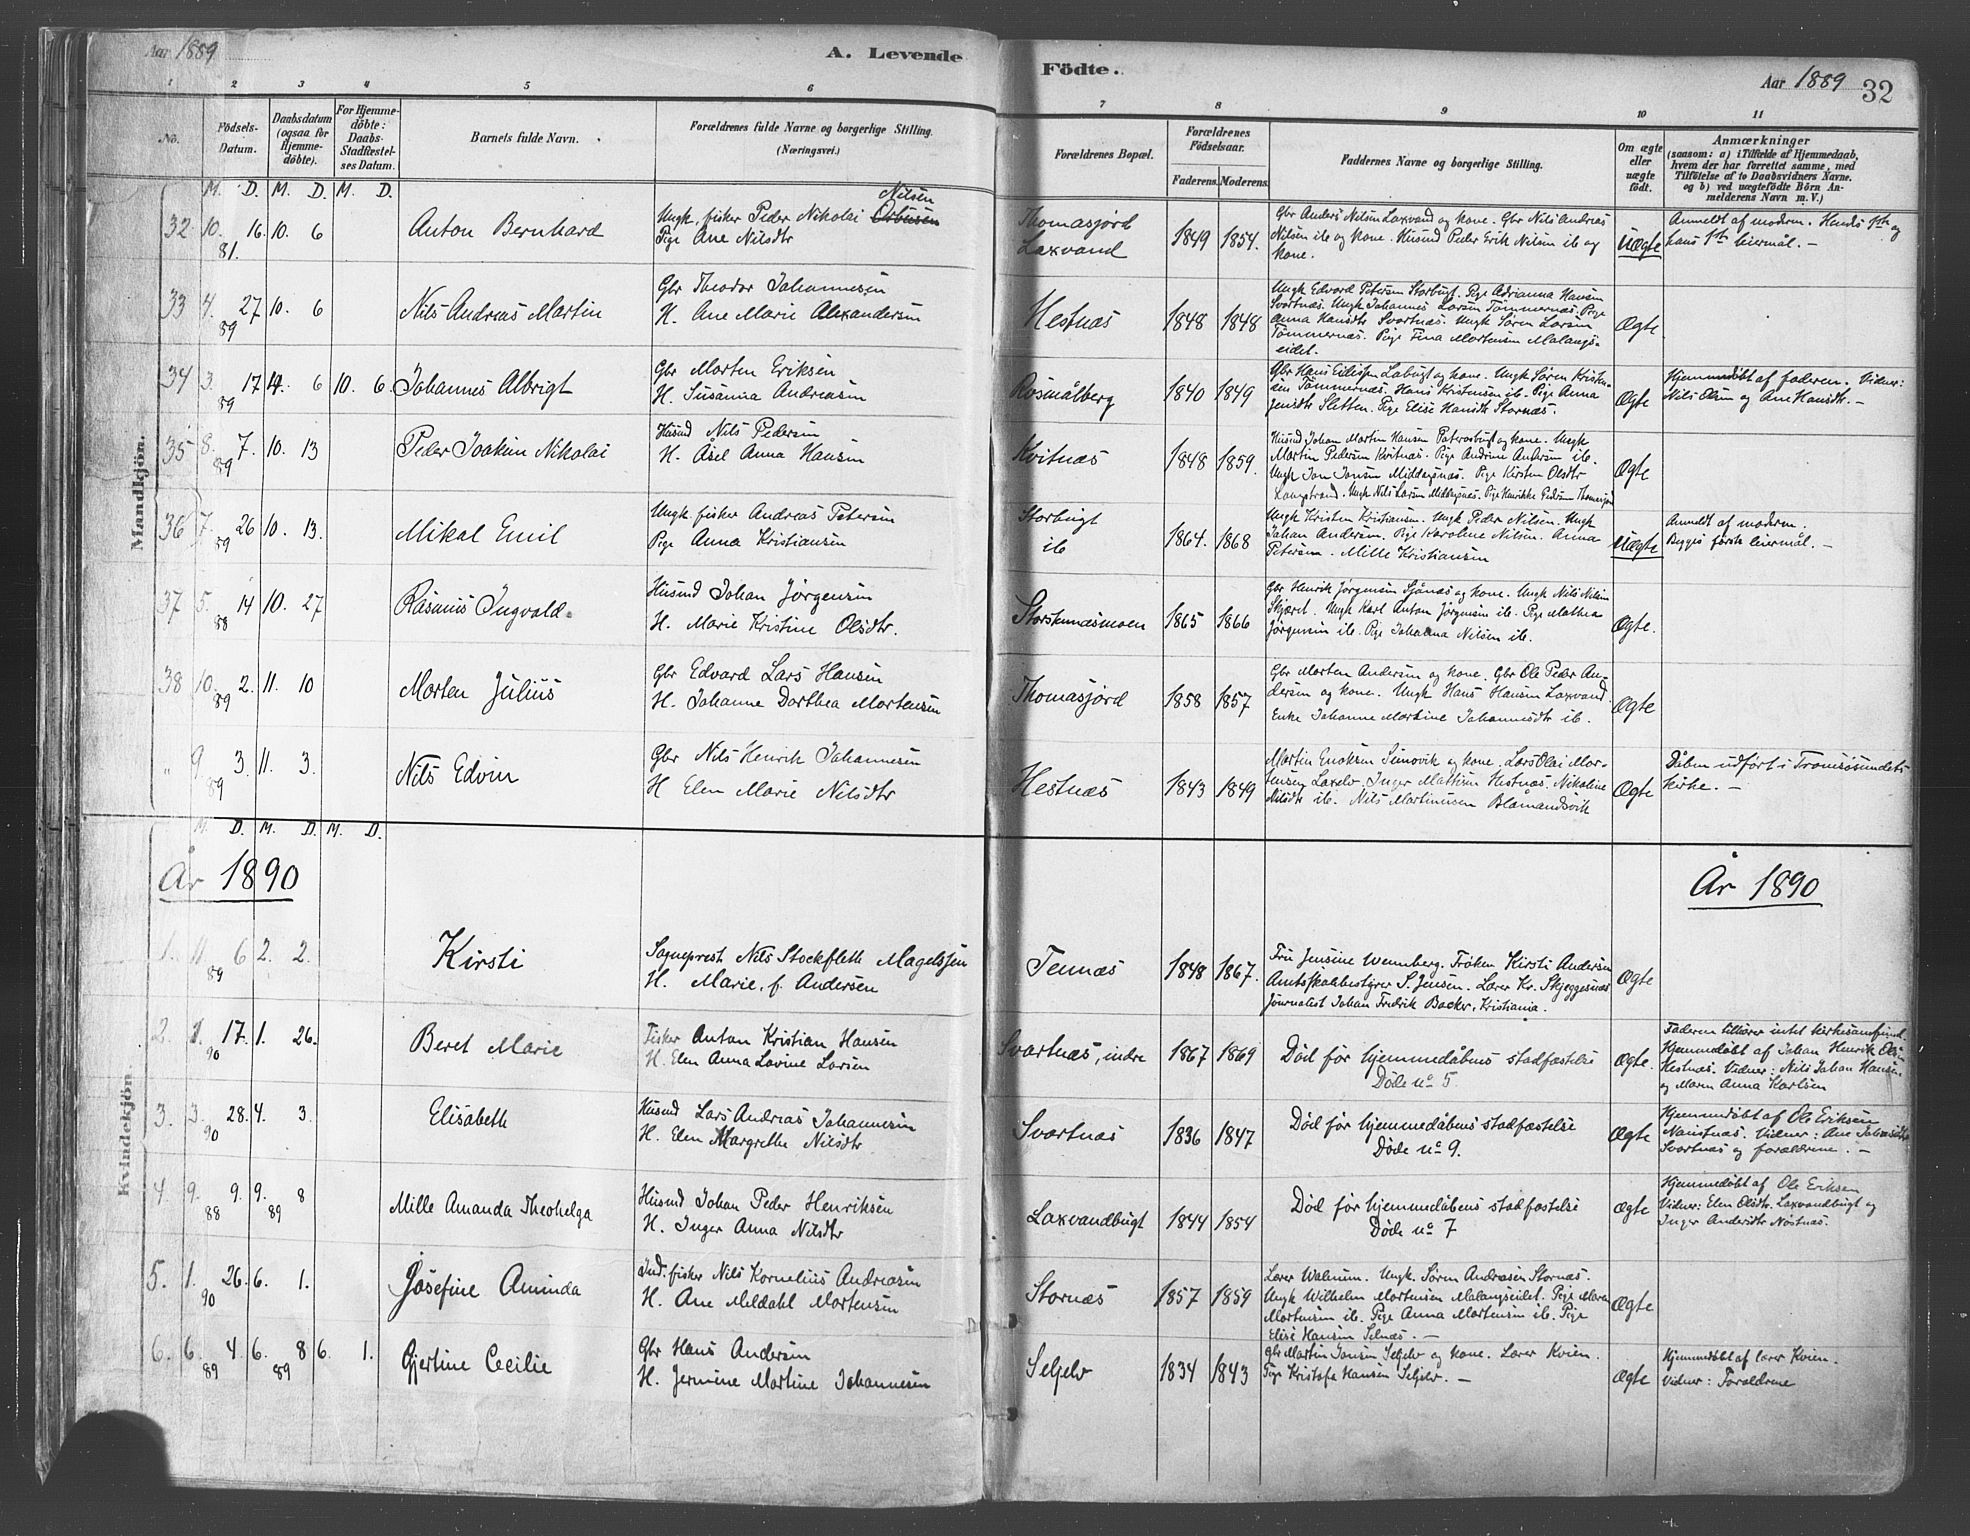 Aar 1889
A. Levende
Födte.
Aar 1889
32
1 2 3 4 5 6 7 8 9 10 11
No.
Födsels-Datum.
Daabsdatum (ogsaa for Hjemme-döbte).
For Hjemme-döbte: Daabs-Stadfæstel-ses Datum.
Barnets fulde Navn.
Forældrenes fulde Navne og borgerlige Stilling. (Næringsvei.)
Forældrenes Bopæl.
Forældrenes Födselsaar.
Faderens. Moderens.
Faddernes Navne og borgerlige Stilling.
Om ægte eller uægte födt.
Anmærkninger
(saasom: a) i Tilfælde af Hjemmedaab, hvem der har forrettet samme, med Tilföielse af to Daabsvidners Navne. og b) ved uægtefödte Börn An-melderens Navn m. V.)
M. D. M. D. M. D.
Mandkjön.
32 10. 16. 10. 6
81.
Anton Bernhard
Nilsen
Ungk. fisker Peder Nikolai
Pige Ane Nilsdtr
Thomasjord
Laxvand
1849 1854.
Gbr Anders Nilsen Laxvand og kone. Gbr Nils Andreas
Nilsen ib og kone. Husmd Peder Erik Nilsen ib og
kone.
Uægte
Anmeldt af modern. Hendes 1ste og
hans 1ste leiermål. –
33 4. 27 10. 6
89
Nils Andreas Martin
Gbr Theodor Johannesen
H. Ane Marie Alexandersen
Hestnæs
1848 1848
Ungk Edvard Petersen Storbugt. Pige Adrianna Hansen
Svartnæs. Ungk Johannes Larsen Tømmernæs. Pige
Anna Hansdtr Svartnæs. Ungk Søren Larsen
Tømmernæs. Pige Fina Mortensen Malangs-
eidet.
Ægte
34 3. 17 4. 6 10. 6.
89
Johannes Albrigt
Gbr Morten Eriksen
H. Susanna Andreasen
Rosmålberg
1840 1849
Gbr Hans Eilissen Labugt og kone. Ungk Søren Kristen-
sen Tømmernæs. Hans Kristensen ib. Pige Anna
Jensdtr Sletten. Pige Elise Hansdtr Stornæs.
Ægte
Hjemmedøbt af faderen. Vidner:
Nils Olsen og Ane Hansdtr. –
35 8. 7. 10. 13
89
Peder Joakim Nikolai
Husmd Nils Pedersen
H. Åsel Anna Hansen
Kvitnæs
1848 1859.
Husmd Johan Martin Hansen og kone. Ungk
Martin Pedersen Kvitnæs. Pige Andrine Andersen ib.
Ungk Jon Jonsen Middagsnæs. Pige Kirsten Olsdtr
Langstrand. Ungk Nils Larsen Middagsnæs. Pige Henrikke Pedersen
Ægte
36 7. 26 10. 13.
89
Mikal Emil
Ungk. fisker Andreas Petersen
Pige Anna Kristiansen
Storbugt
ib
1864. 1868
Ungk Kristen Kristiansen. Ungk Peder Nilsen. Ungk
Johan Andersen. Pige Karoline Nilsen. Anna
Petersen. Mille Kristiansen
Uægte
Anmeldt af modern.
Begges første leiermål. –
37 5. 14 10. 27
88
Rasmus Ingvald
Husmd Johan Jørgensen
H. Marie Kristine Olsdtr.
Storstennæsmoen
1865 1866
Gbr Henrik Jørgensen Sjånæs og kone. Ungk Nils Nilsen
Skjæret. Ungk Karl Anton Jørgensen ib. Pige Mathea
Jørgensen ib. Pige Johanna Nilsen ib.
Ægte.
38 10. 2. 11. 10
89
Morten Julius
Gbr Edvard Lars Hansen
H. Johanne Dorthea Mortensen
Thomasjord
1858 1857
Gbr Morten Andersen og kone. Gbr Ole Peder An-
dersen og kone. Ungk Hans Hansen Laxvand
Enke Johanne Martine Johannesdtr ib.
Ægte
" 9. 3. 11. 3.
89
Nils Edvin
Gbr Nils Henrik Johannesen
H Elen Marie Nilsdtr
Hestnæs
1843 1849
Martin Enoksen Simovik og kone. Lars Olai Mor-
tensen Laxelv. Inger Mathisen Hestnæs. Nikoline
Nilsdtr ib. Nils Martinusen Blåmandsvik
Ægte
Dåben udført i Tromsøsundets
kirke. –
M. D. M. D. M. D.
År 1890
År 1890
Kvindekjön
1. 11 6 2. 2.
89
Kirsti
Sogneprest Nils Stockfleth Magelssen
H. Marie, f. Andersen
Tennæs
1848 1867.
Fru Jensine Wennberg. Frøken Kirsti Andersen
Amtsskolebestyrer S. Jensen. Lærer Kr. Skjeggesnæs
Journalist Johan Fredrik Backer, Kristiania.
Ægte
2. 1. 17. 1. 26.
90
Beret Marie
Fisker Anton Kristian Hansen
H. Elen Anna Lovine Larsen
Svartnæs, indre
1867 1869
Død før hjemmedåbens stadfæstelse
Døde no 5.
Ægte.
Faderen tilhører intet kirkesamfund.
Hjemmedøbt af Johan Henrik Olsen
Hestnæs. Vidner: Nils Johan Hansen
og Maren Anna Karlsen
3. 3. 28. 4. 3.
90
Elisabeth
Husmd Lars Andreas Johannesen
H. Elen Margrethe Nilsdtr
Svartnæs
1836 1847
Død før hjemmedåbens stadfæstelse
Døde no 9.
Ægte
Hjemmedøbt af Ole Eriksen
Navstnæs. Vidner: Ane Johansdtr
Svartnæs og forældrene. –
4. 9. 9. 9. 8
88 89
Mille Amanda Theohelga
Husmd Johan Peder Henriksen
H. Inger Anna Nilsdtr
Laxvandbugt
1844 1854
Død før hjemmedåbens stadfæstelse
Døde no 7
Ægte
Hjemmedøbt af Ole Eriksen
Vidner: Elen Olsdtr. Laxvandbugt og
Inger Andersdtr Nøstnæs.
5. 1. 26. 6. 1.
90
Josefine Aminda
Ind. fisker Nils Kornelius Andreasen
H. Ane Meldahl Mortensen
Stornæs
1857 1859
Lærer Walnum. Ungk. Søren Andreasen Stornæs.
Ungk Wilhelm Mortensen Malangseidet. Pige Maren
Mortensen ib. Pige Anna Mortensen ib. Pige
Elise Hansen Selnæs. –
Ægte
6. 6. 4. 6. 8 6. 1.
89 89
Gjertine Cecilie
Gbr Hans Andersen
H. Jermine Martine Johannesen
Seljelv
1834 1843
Gbr Martin Jonsen Seljelv og kone. Lærer Kvien.
Pige Kristofa Hansen Seljelv. –
Ægte
Hjemmedøbt af lærer Kvien.
Vidner: Forældrene